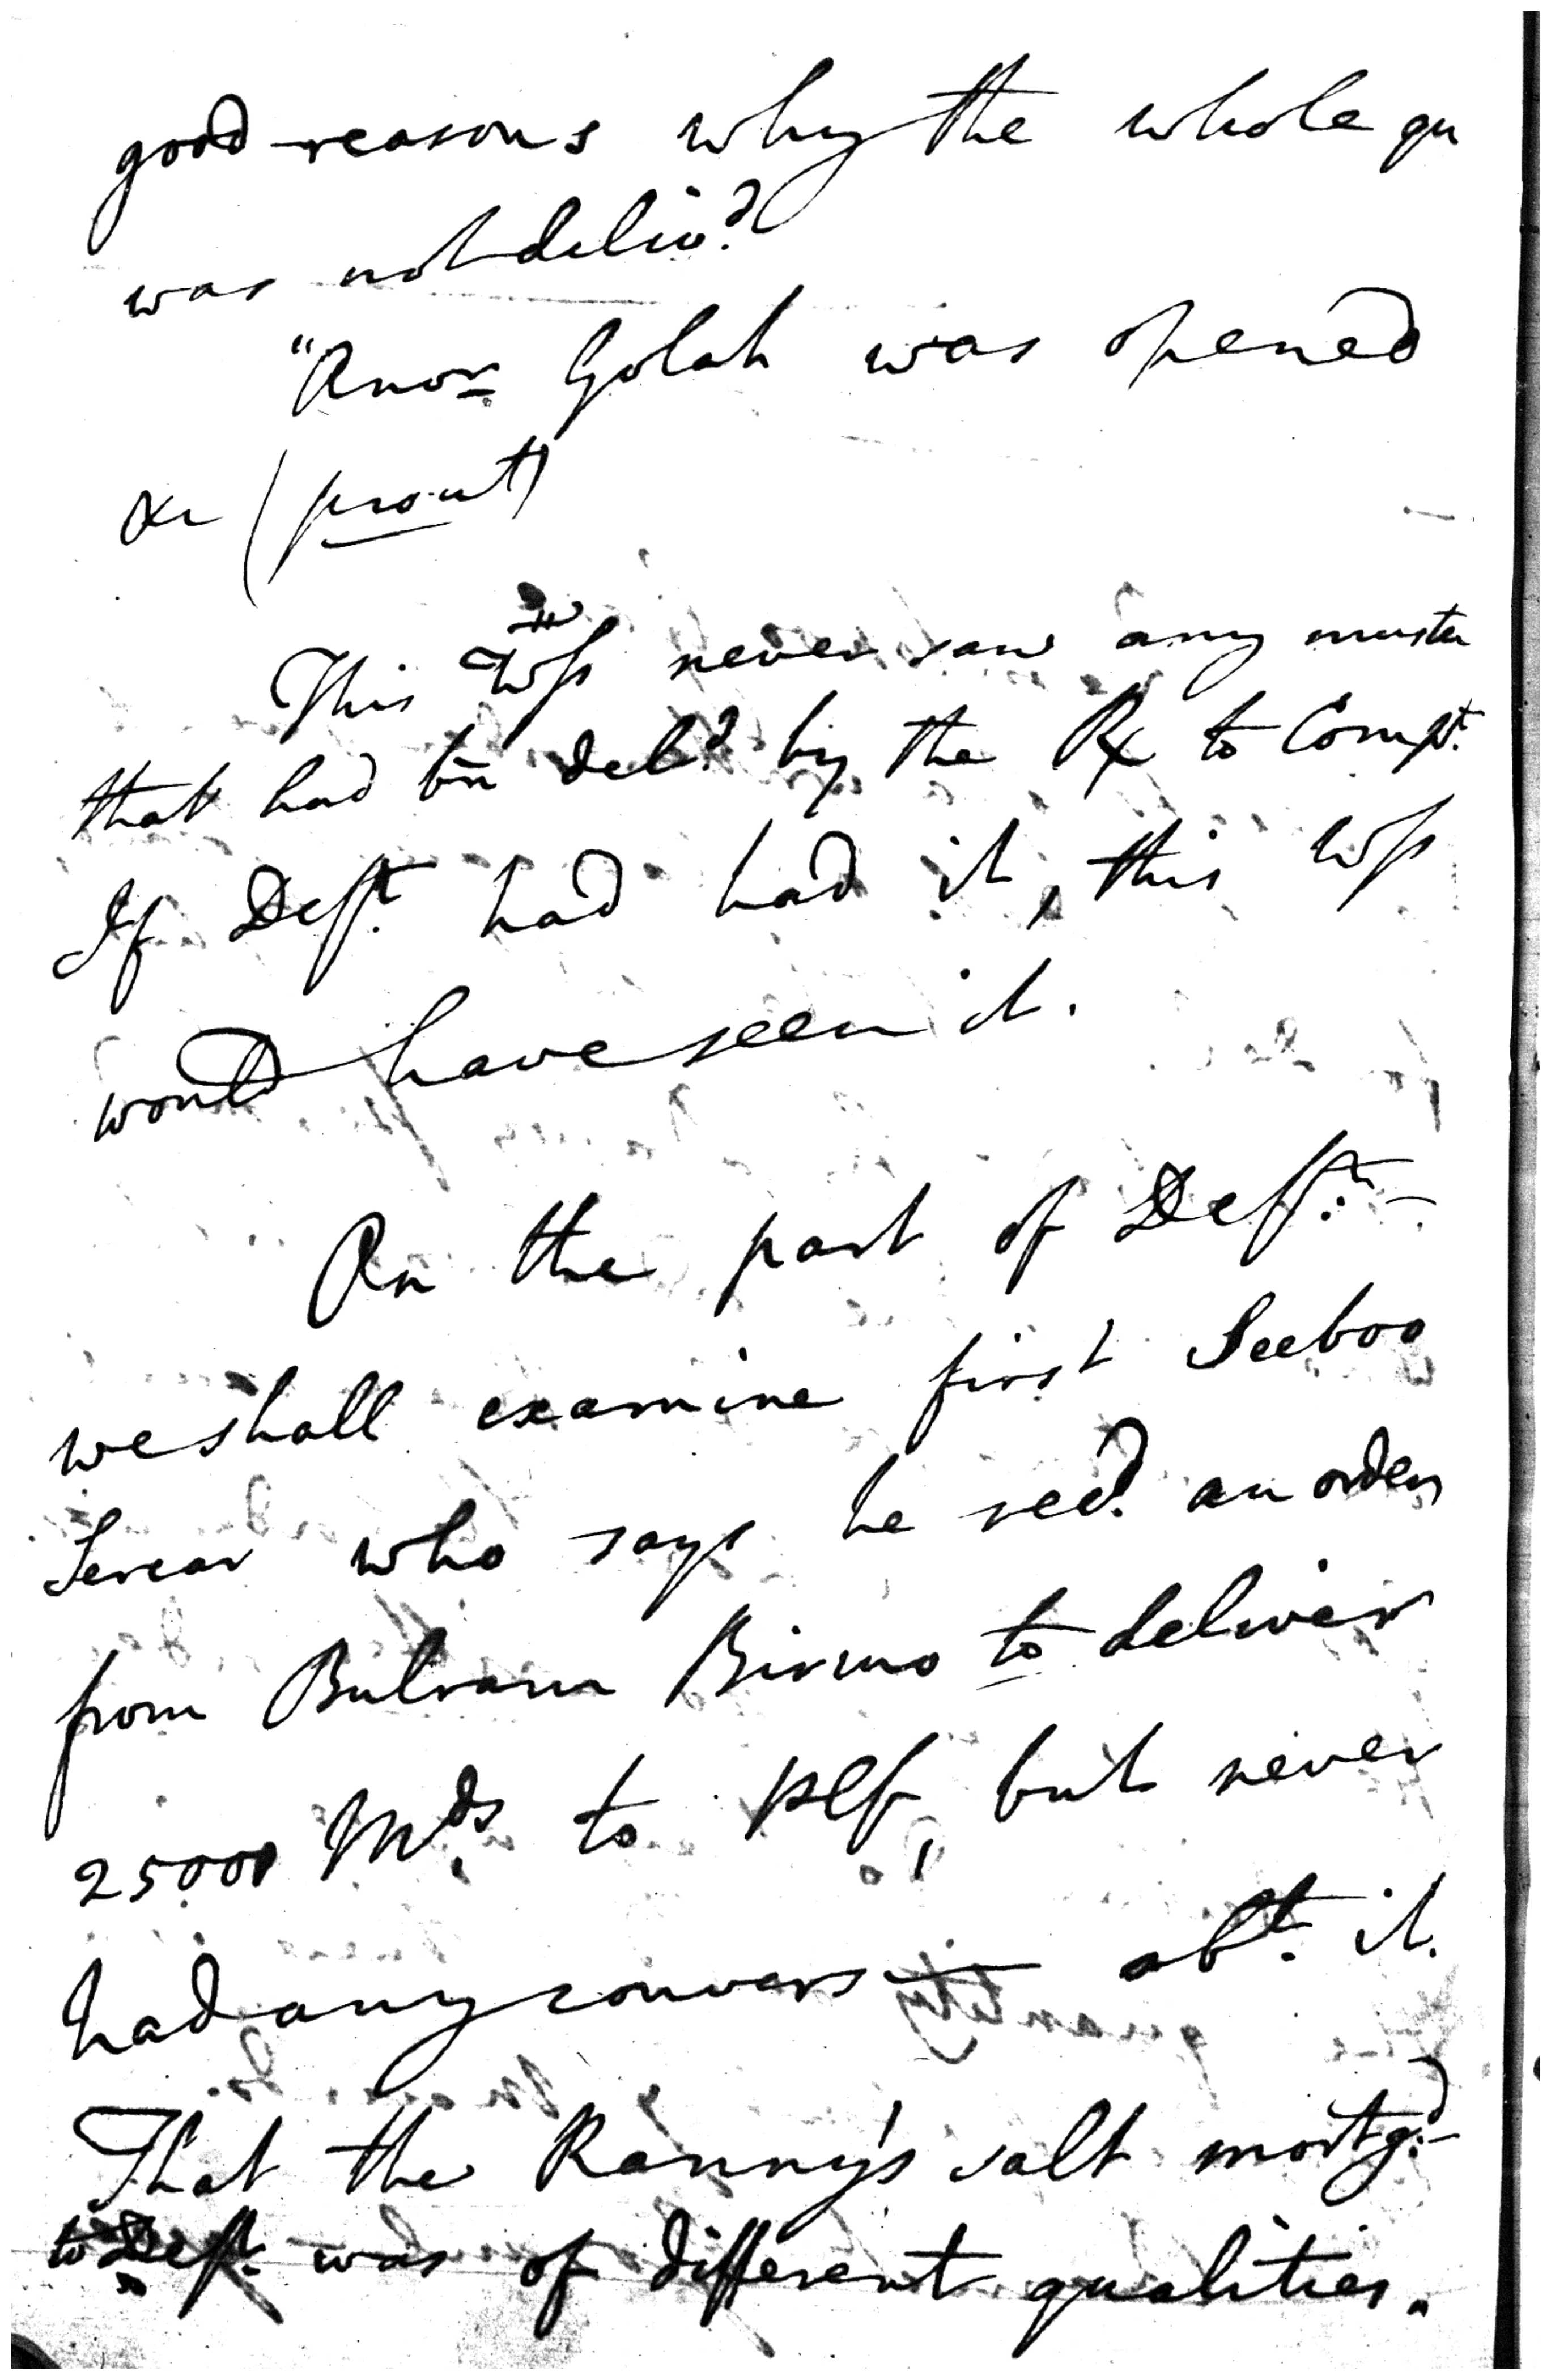 good reasons why the whole qu
was not deliv.d
"Anor Golah was opened
&c (prout)
This Wss never saw any muster
that had bn del.d by the Rx to Compt.
If Deft. had had it, this Wss
would have seen it.
On the part of Deft. –
we shall examine first Seeboo
Sercar who says he recd. an order
from Bulram Birmo to deliver
25000 Mds. to Plf, but never
had any convers— abt. it.
That the Ranny's salt mortg.d
to Deft. was of different qualities.